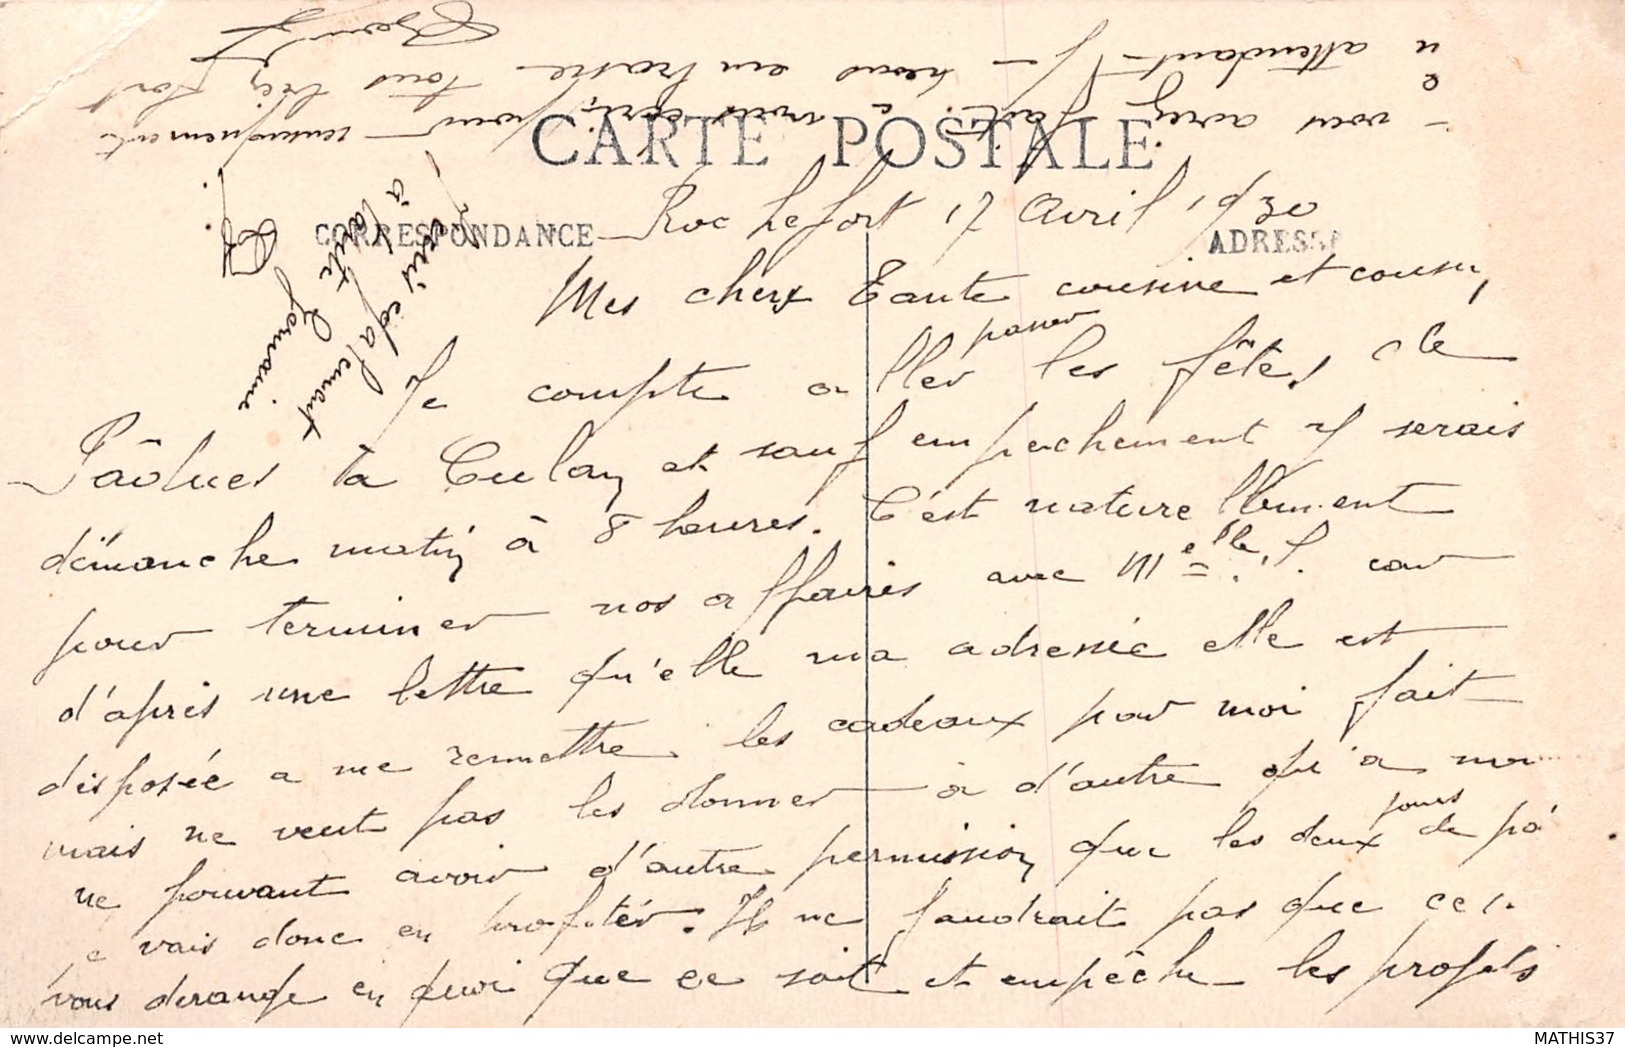 CARTE POSTALE
CORRESPONDANCE
ADRESSE
Rochefort 17 Avril 1930
Mes cherx Tante cousine et cousin,
Je compte aller passer les fêtes de
Pâques à Culan et sauf empechement y serais
dimanche matin à 8 heures. C'est naturellement
pour terminer nos affaires avec Melle. car
d'après une lettre qu'elle ma adressée elle est
disposée a me remettre les cadeaux pour moi fait
mais ne veut pas les donner à d'autre qu'a moi
ne pouvant avoir d'autre permission que les deux jours de pâ
e vais donc en profiter. Il ne faudrait pas que cel
vous derange en quoi que ce soit et empêche les projets
vous avez fait. e vous écris pour uniquement
n attendant je vous embrasse tous très fort
vous également
à Germaine